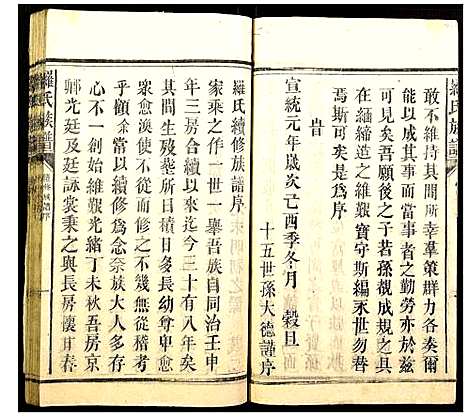 羅氏族譜
敢不維持其間所幸羣策羣力各奏爾
能以成其事而當事者之勤勞亦於此
可見矣吾願後之子若孫觀成規之具
在緬締造之維艱寶守斯編永世勿替
焉斯可矣是爲序
旹
宣統元年歲次己酉季冬月 穀旦
十五世孫大德謹序
羅氏續修族譜序
家乘之作一世一舉吾族自同治壬申
年三房合續以來迄今三十有八年矣
其間生歿葬所日積日多長幼尊卑日
衆愈渙使不及時而修之不幾無從稽考
乎顧余嘗以續修爲念奈族大人多存
心不一創始維艱光緒丁未秋吾房京
卿光廷及廷詠裳秉之與長房懷甘春
羅氏族譜